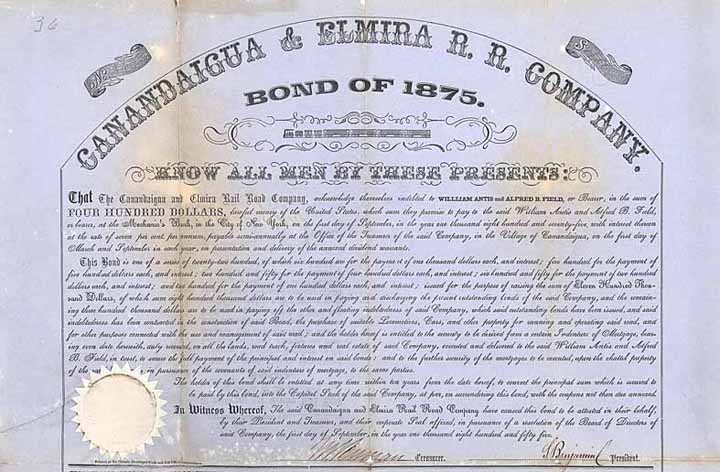 36
No.
$
CANANDAIGUA & ELMIRA R. R. COMPANY.
BOND OF 1875.
KNOW ALL MEN BY THESE PRESENTS:
That The Canandaigua and Elmira Rail Road Company, acknowledge themselves indebted to WILLIAM ANTIS and ALFRED B. FIELD, or Bearer, in the sum of
FOUR HUNDRED DOLLARS, lawful money of the United States, which sum they promise to pay to the said William Antis and Alfred B. Field,
or bearer, at the Mechanic's Bank, in the City of New York, on the first day of September, in the year one thousand eight hundred and seventy-five, with interest thereon
at the rate of seven per cent. per annum, payable semi-annually at the Office of the Treasurer of the said Company, in the Village of Canandaigua, on the first day of
March and September in each year, on presentation and delivery of the annexed dividend warrants.
This Bond is one of a series of twenty-two hundred, of which six hundred are for the payment of one thousand dollars each, and interest; five hundred for the payment of
five hundred dollars each, and interest; two hundred and fifty for the payment of four hundred dollars each, and interest; six hundred and fifty for the payment of two hundred
dollars each, and interest; and two hundred for the payment of one hundred dollars each, and interest; issued for the purpose of raising the sum of Eleven Hundred Thou-
sand Dollars, of which sum eight hundred thousand dollars are to be used in paying and discharging the present outstanding bonds of the said Company, and the remain-
ing three hundred thousand dollars are to be used in paying off the other and floating indebtedness of said Company, which said outstanding bonds have been issued, and said
indebtedness has been contracted in the construction of said Road, the purchase of suitable Locomotives, Cars, and other property for running and operating said road, and
for other purposes connected with the use and management of said road; and the holder hereof is entitled to the security to be derived from a certain Indenture of Mortgage, bear-
ing even date herewith, duly executed, on all the lands, road track, fixtures and real estate of said Company, executed and delivered to the said William Antis and Alfred
B. Field, in trust, to secure the full payment of the principal and interest on said bonds; and to the further security of the mortgages to be executed, upon the chattel property
of the in pursuance of the covenants of said indenture of mortgage, to the same parties.
The holder of this bond shall be entitled at any time within ten years from the date hereof, to convert the principal sum which is secured to
be paid by this bond, into the Capital Stock of the said Company, at par, on surrendering this bond, with the coupons not then due annexed.
In Witness Whereof, The said Canandaigua and Elmira Rail Road Company have caused this bond to be attested in their behalf,
by their President and Treasurer, and their corporate Seal affixed, in pursuance of a resolution of the Board of Directors of
said Company, the first day of September, in the year one thousand eight hundred and fifty five.
Treasurer.
President.